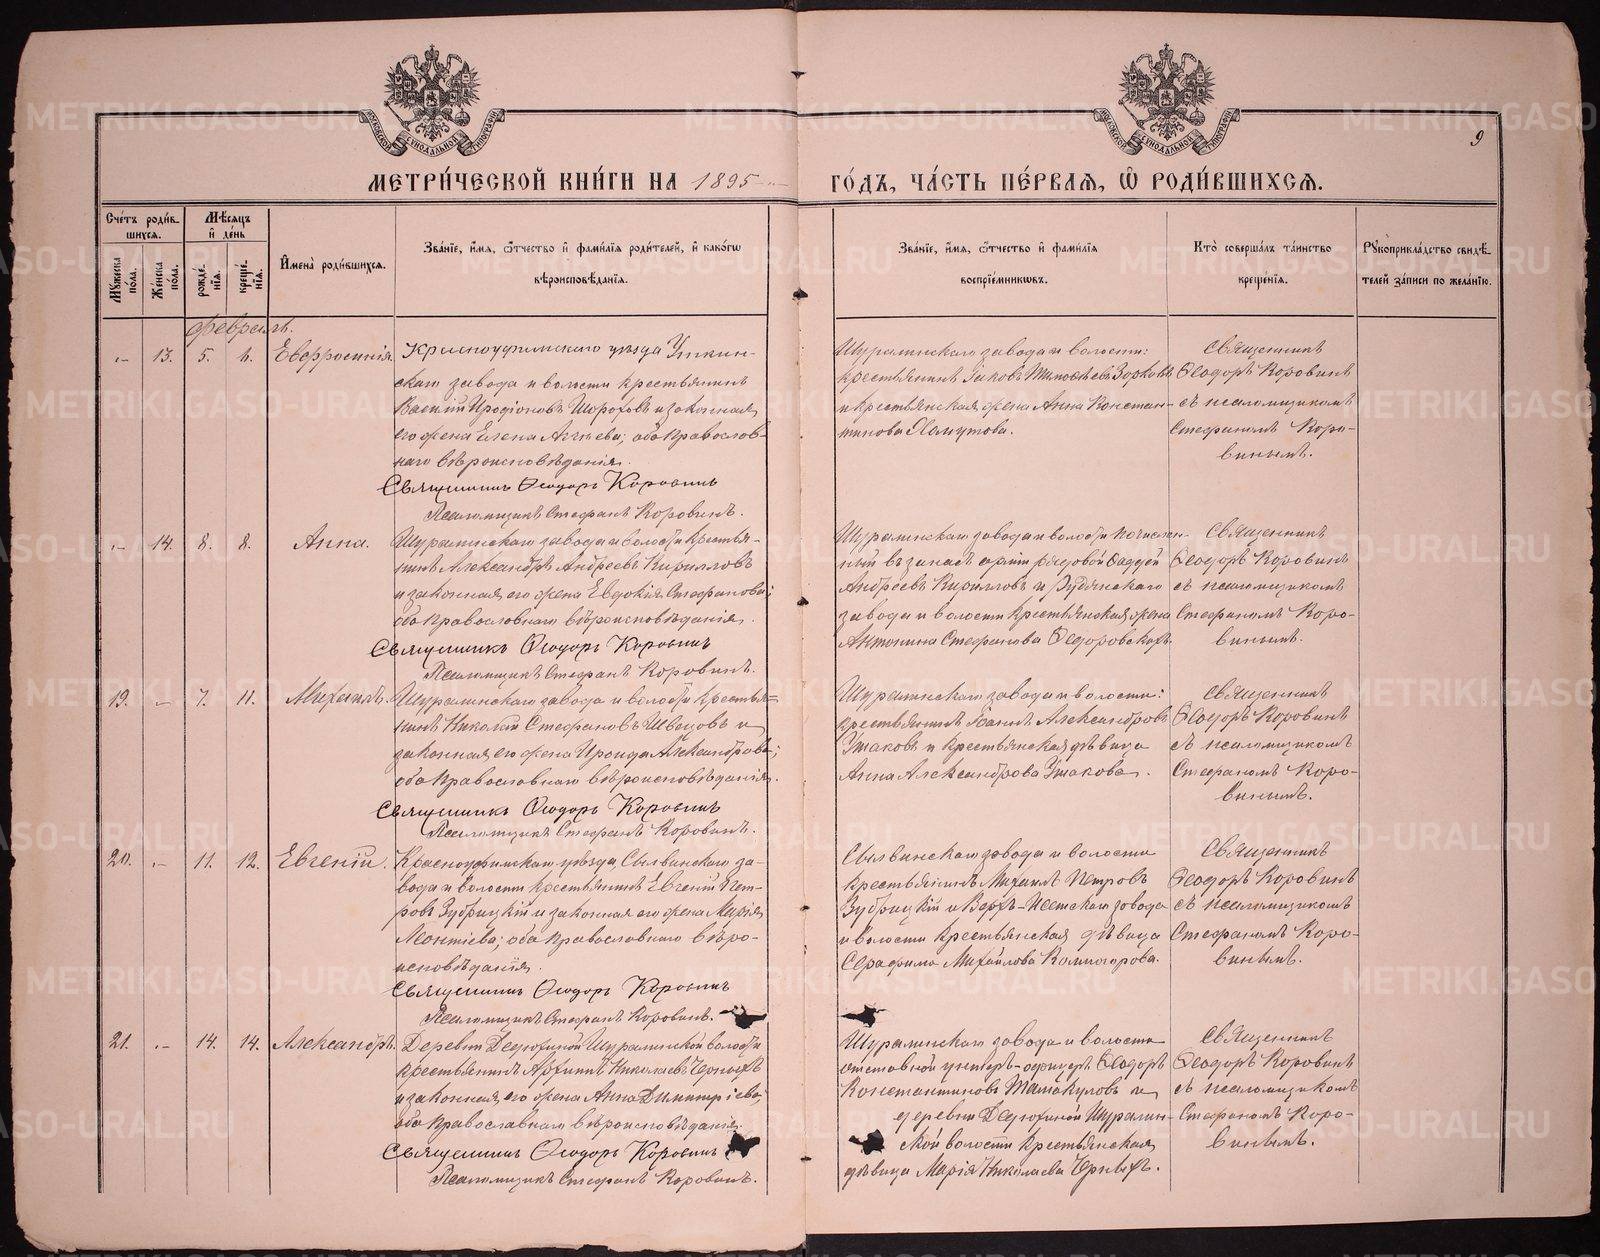 9
МЕТРИЧЕСКОЙ КНИГИ НА 1895 ГОДЪ, ЧАСТЬ ПЕРВАЯ, Ѽ РОДИВШИХСЯ.
Счетъ родившихся.
Мужеска пола.
Женска пола.
Мѣсяцъ и день
рожденія.
крещенія.
Имена родившихся.
Званіе, имя, ѿчество и фамилія родителей, и какогѡ
вѣроисповѣданія.
Званіе, имя, ѿчество и фамилія
воспріемниковъ.
Кто совершалъ таинство
крещенія.
Рукоприкладство свидѣтелей записи по желанію.
февраль.
13. 5. 6. Евфросинія.
Красноуфимскаго уѣзда Уткин-
скаго завода и волости крестьянинъ
Василій Иродіоновъ Шороховъ и законная
его жена Елена Агѣева; оба православ-
наго вѣроисповѣданія.
Священникъ Ѳеодоръ Коровинъ
Псаломщикъ Стефанъ Коровинъ.
Шуралинскаго завода и волости:
крестьянинъ Іаковъ Тимоѳеевъ
и крестьянская жена Анна Констан-
тинова Хомутова.
Священникъ
Ѳеодоръ Коровинъ
съ псаломщикомъ
Стефаномъ Коро-
винымъ.
14. 8. 8. Анна.
Шуралинскаго завода и волости крестья-
нинъ Александръ Андреевъ Кирилловъ
и законная его жена Евдокія Стефанова;
оба православнаго вѣроисповѣданія.
Священникъ Ѳеодоръ Коровинъ
Псаломщикъ Стефанъ Коровинъ.
Шуралинскаго завода и волости
ный въ запасъ арміи рядовой Ѳаддей
Андреевъ Кирилловъ и Рудянскаго
завода и волости крестьянская жена
Антонина Стефанова
Священникъ
Ѳеодоръ Коровинъ
съ псаломщикомъ
Стефаномъ Коро-
винымъ.
19. 7. 11. Михаилъ.
Шуралинскаго завода и волости крестья-
нинъ Николай Стефановъ Швецовъ и
законная его жена Ироида Александрова;
оба православнаго вѣроисповѣданія.
Священникъ Ѳеодоръ Коровинъ
Псаломщикъ Стефанъ Коровинъ.
Шуралинскаго завода и волости:
крестьянинъ Іоаннъ Александровъ
Ушаковъ и крестьянская дѣвица
Анна Александрова Ушакова.
Священникъ
Ѳеодоръ Коровинъ
съ псаломщикомъ
Стефаномъ Коро-
винымъ.
20. 11. 12. Евгеній.
Красноуфимскаго уѣзда, Сылвинскаго за-
вода и волости крестьянинъ Евгеній Пет-
ровъ Зубрицкій и законная его жена Марія
Леонтіева; оба православнаго вѣро-
исповѣданія.
Священникъ Ѳеодоръ Коровинъ
Псаломщикъ Стефанъ Коровинъ.
Сылвинскаго завода и волости
крестьянинъ Михаилъ Петровъ
Зубрицкій и Верхъ-Исетскаго завода
и волости крестьянская дѣвица
Серафима Михайлова Колногорова.
Священникъ
Ѳеодоръ Коровинъ
съ псаломщикомъ
Стефаномъ Коро-
винымъ.
21. 14. 14. Александръ.
Деревни Дедюхиной Шуралинской волости
крестьянинъ Николаевъ Черныхъ
и законная его жена Анна Димитріева;
оба православнаго вѣроисповѣданія.
Священникъ Ѳеодоръ Коровинъ
Псаломщикъ Стефанъ Коровинъ.
Шуралинскаго завода и волости
отставной унтеръ-офицеръ Ѳеодоръ
Константиновъ Татакуловъ и
деревни Дедюхиной Шуралин-
ской волости крестьянская
дѣвица Марія Николаева Черныхъ.
Священникъ
Ѳеодоръ Коровинъ
съ псаломщикомъ
Стефаномъ Коро-
винымъ.
METRIKI.GASO-URAL.RU